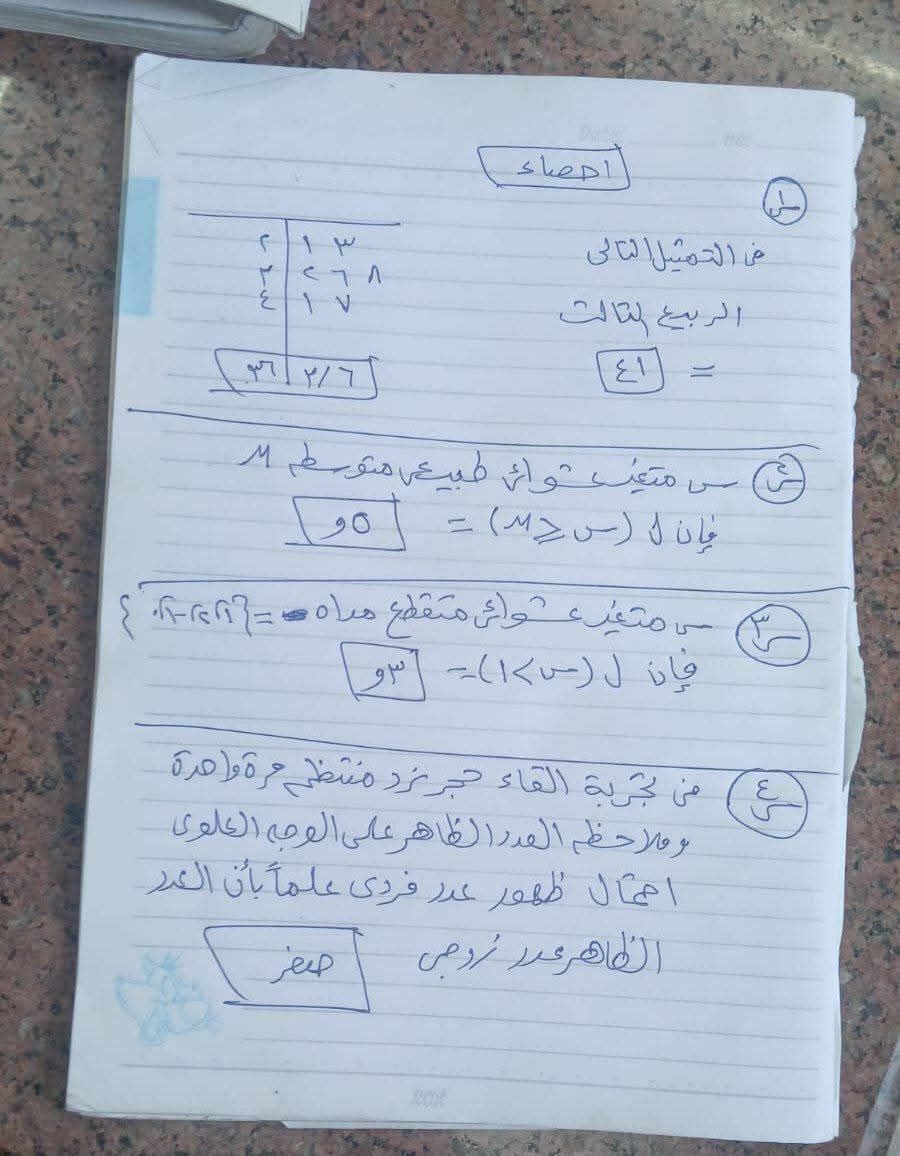 احصاء
س١
فى التمثيل التالى
٢ | ١ ٣
٣ | ٢ ٦ ٨
٤ | ١ ٧
الربيع الثالث
= ٤١
٣٦ | ٣/٦
س٢ س متغير عشوائى طبيعى متوسطه μ
فإن ل (س ≥ μ) = ٥و
س٣ س متغير عشوائى متقطع مداه =
فإن ل (س > ١) = ٣و
س٤ فى تجربة القاء حجر نرد منتظم مرة واحدة
وملاحظه العدد الظاهر على الوجه العلوى
احتمال ظهور عدد فردى علماً بأن العدد
الظاهر عدد زوجى صفر